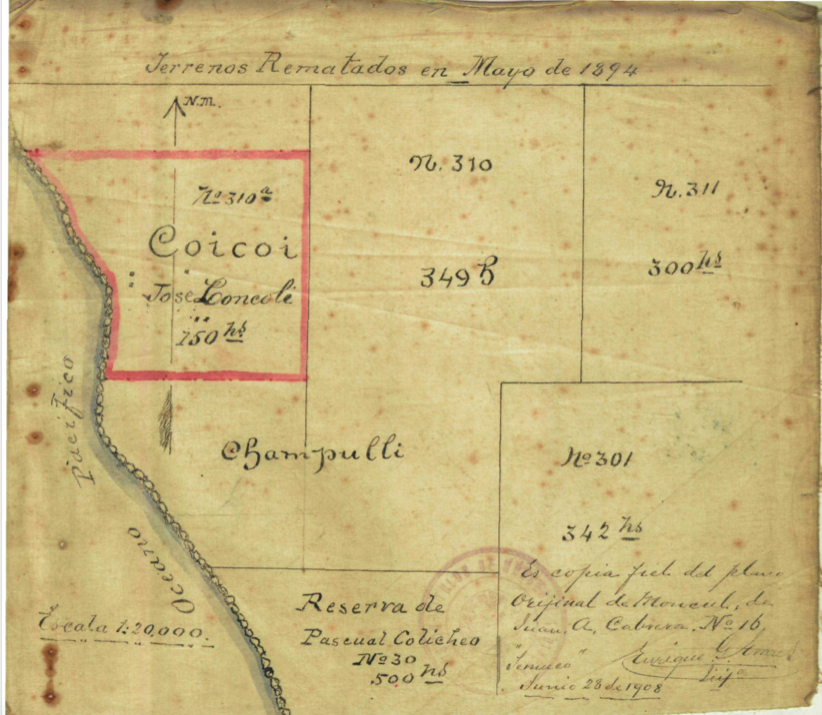 Terrenos Rematados en Mayo de 1894
N.M.
No 310a
Coicoi
Jose Loncoli
150 hs
N. 310
349 h
N. 311
300 hs
Pacifico
Champulli
No 301
342 hs
Oceano
Escala 1:20,000.
Reserva de
Pascual Colicheo
No 30
500 hs
Es copia fiel del plano
Orijinal de Moncul, de
Juan, A, Cabrera, No 16
"Temuco"
Enrique G.
Junio 28 de 1908